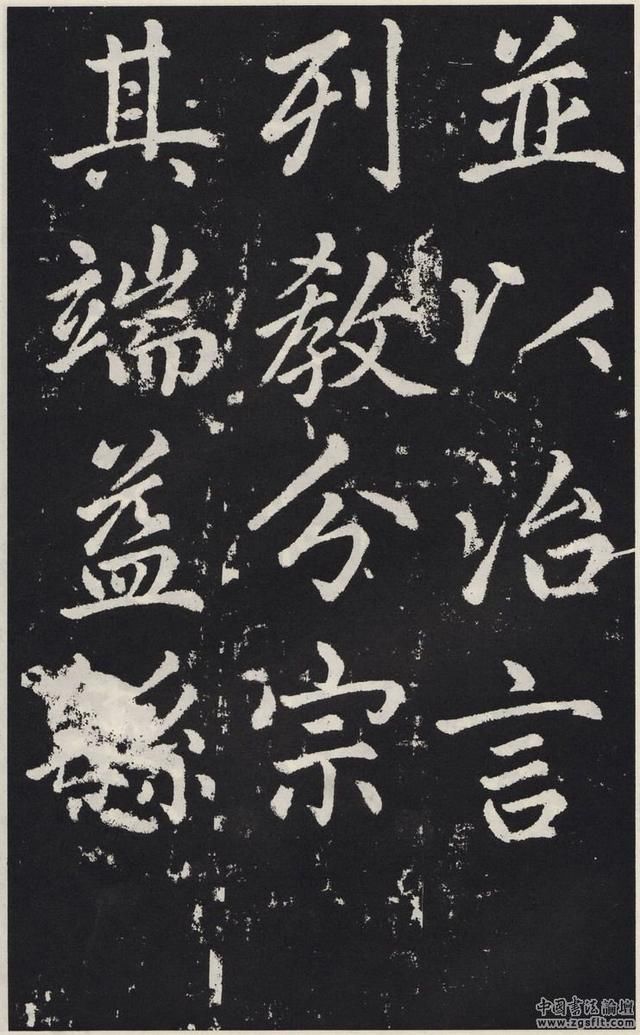 並以治言
列教分宗
其端益縣
中国書法論壇
www.zgsflt.com